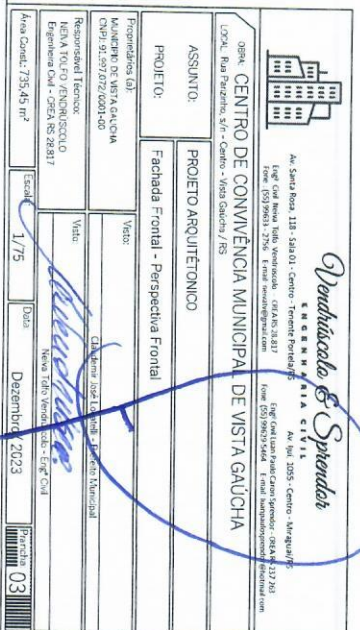 Vendrúscolo & Sprendor
ENGENHARIA CIVIL
Av. Santa Rosa, 118 - Sala 01 - Centro - Tenente Portela/RS
Av. Ijuí, 1055 - Centro - Miraguaí/RS
Engª Civil Neiva Tolfo Vendruscolo CREA RS 28.817
Engº Civil Luan Paulo Caron Sprendor - CREA RS 237.263
Fone: (55) 99633 - 2756 E-mail:
Fone: (55) 99629 5464 E-mail:
OBRA: CENTRO DE CONVIVÊNCIA MUNICIPAL DE VISTA GAÚCHA
LOCAL: Rua Parzinho, s/n - Centro - Vista Gaúcha / RS
ASSUNTO: PROJETO ARQUITÊTONICO
PROJETO: Fachada Frontal - Perspectiva Frontal
Proprietários (a):
MUNICÍPIO DE VISTA GAÚCHA
CNPJ: 91.997.072/0001-00
Visto:
Claudemir José Locatelli - Prefeito Municipal
Responsável Técnico:
NEIVA TOLFO VENDRÚSCOLO
Engenheira Civil - CREA RS 28.817
Visto:
Neiva Tolfo Vendruscolo - Engª Civil
Área Const.: 735,45 m²
Escala 1/75
Data Dezembro 2023
Prancha 03